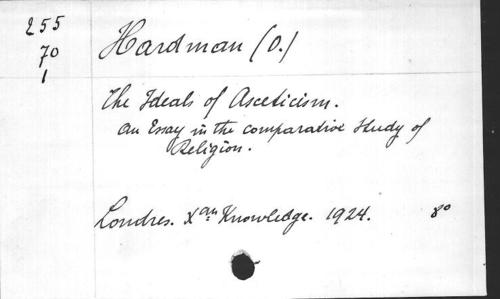 255
70
1
Hardman (O.)
The Ideals of Asceticism.
An Essay in the comparative Study of
Religion.
Londres. Xan Knowledge. 1924. 8°